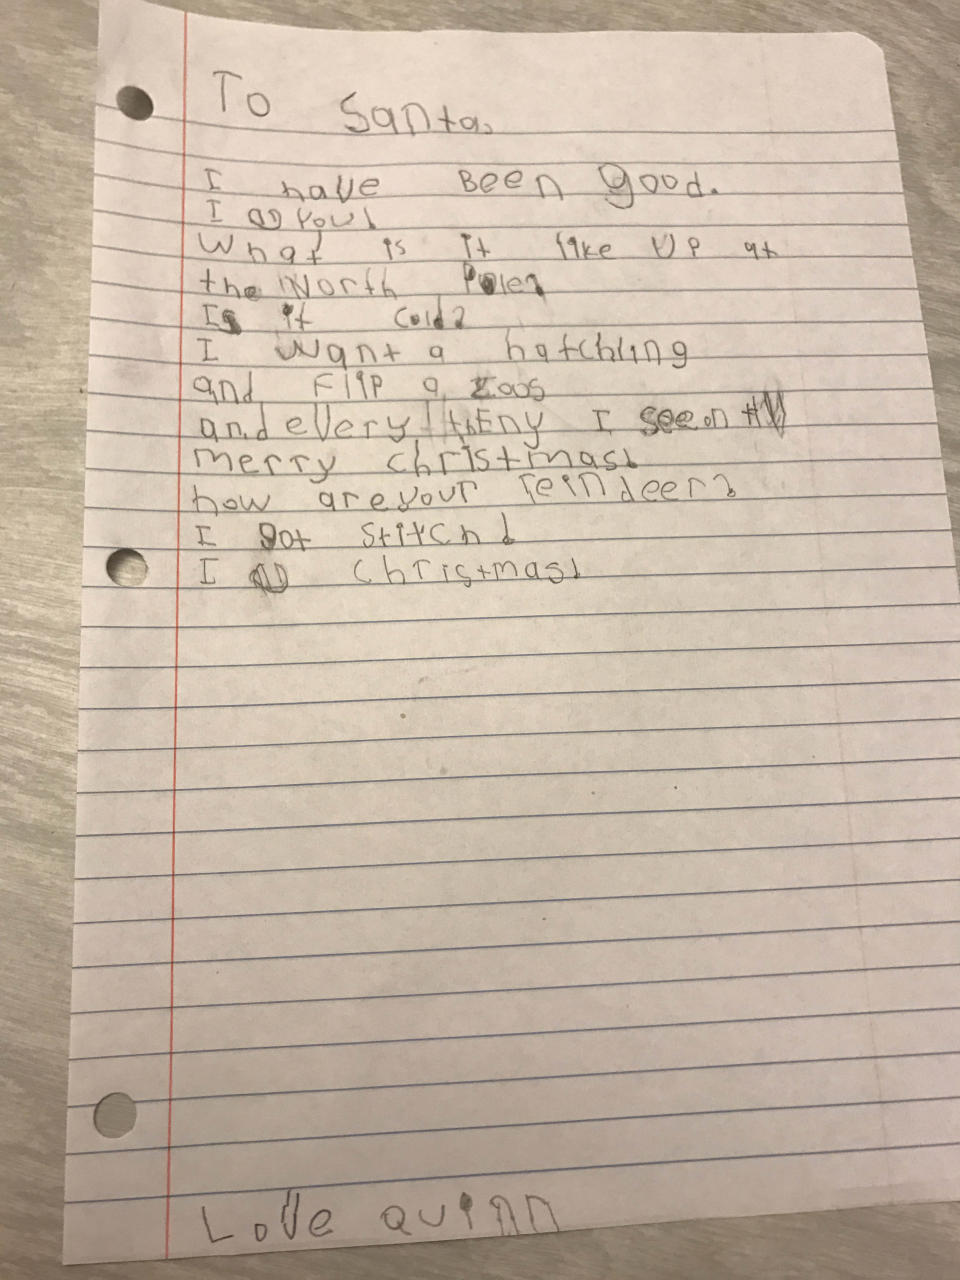 To Santa,
I have Been good.
I you!
What is it like up at
the North Pole?
Is it cold?
I want a hatchling
and Flip a Zoos
and every thEny I see on tV
merry christmas!
how are your reindeer?
I got stitch!
I christmas!
Love Quinn